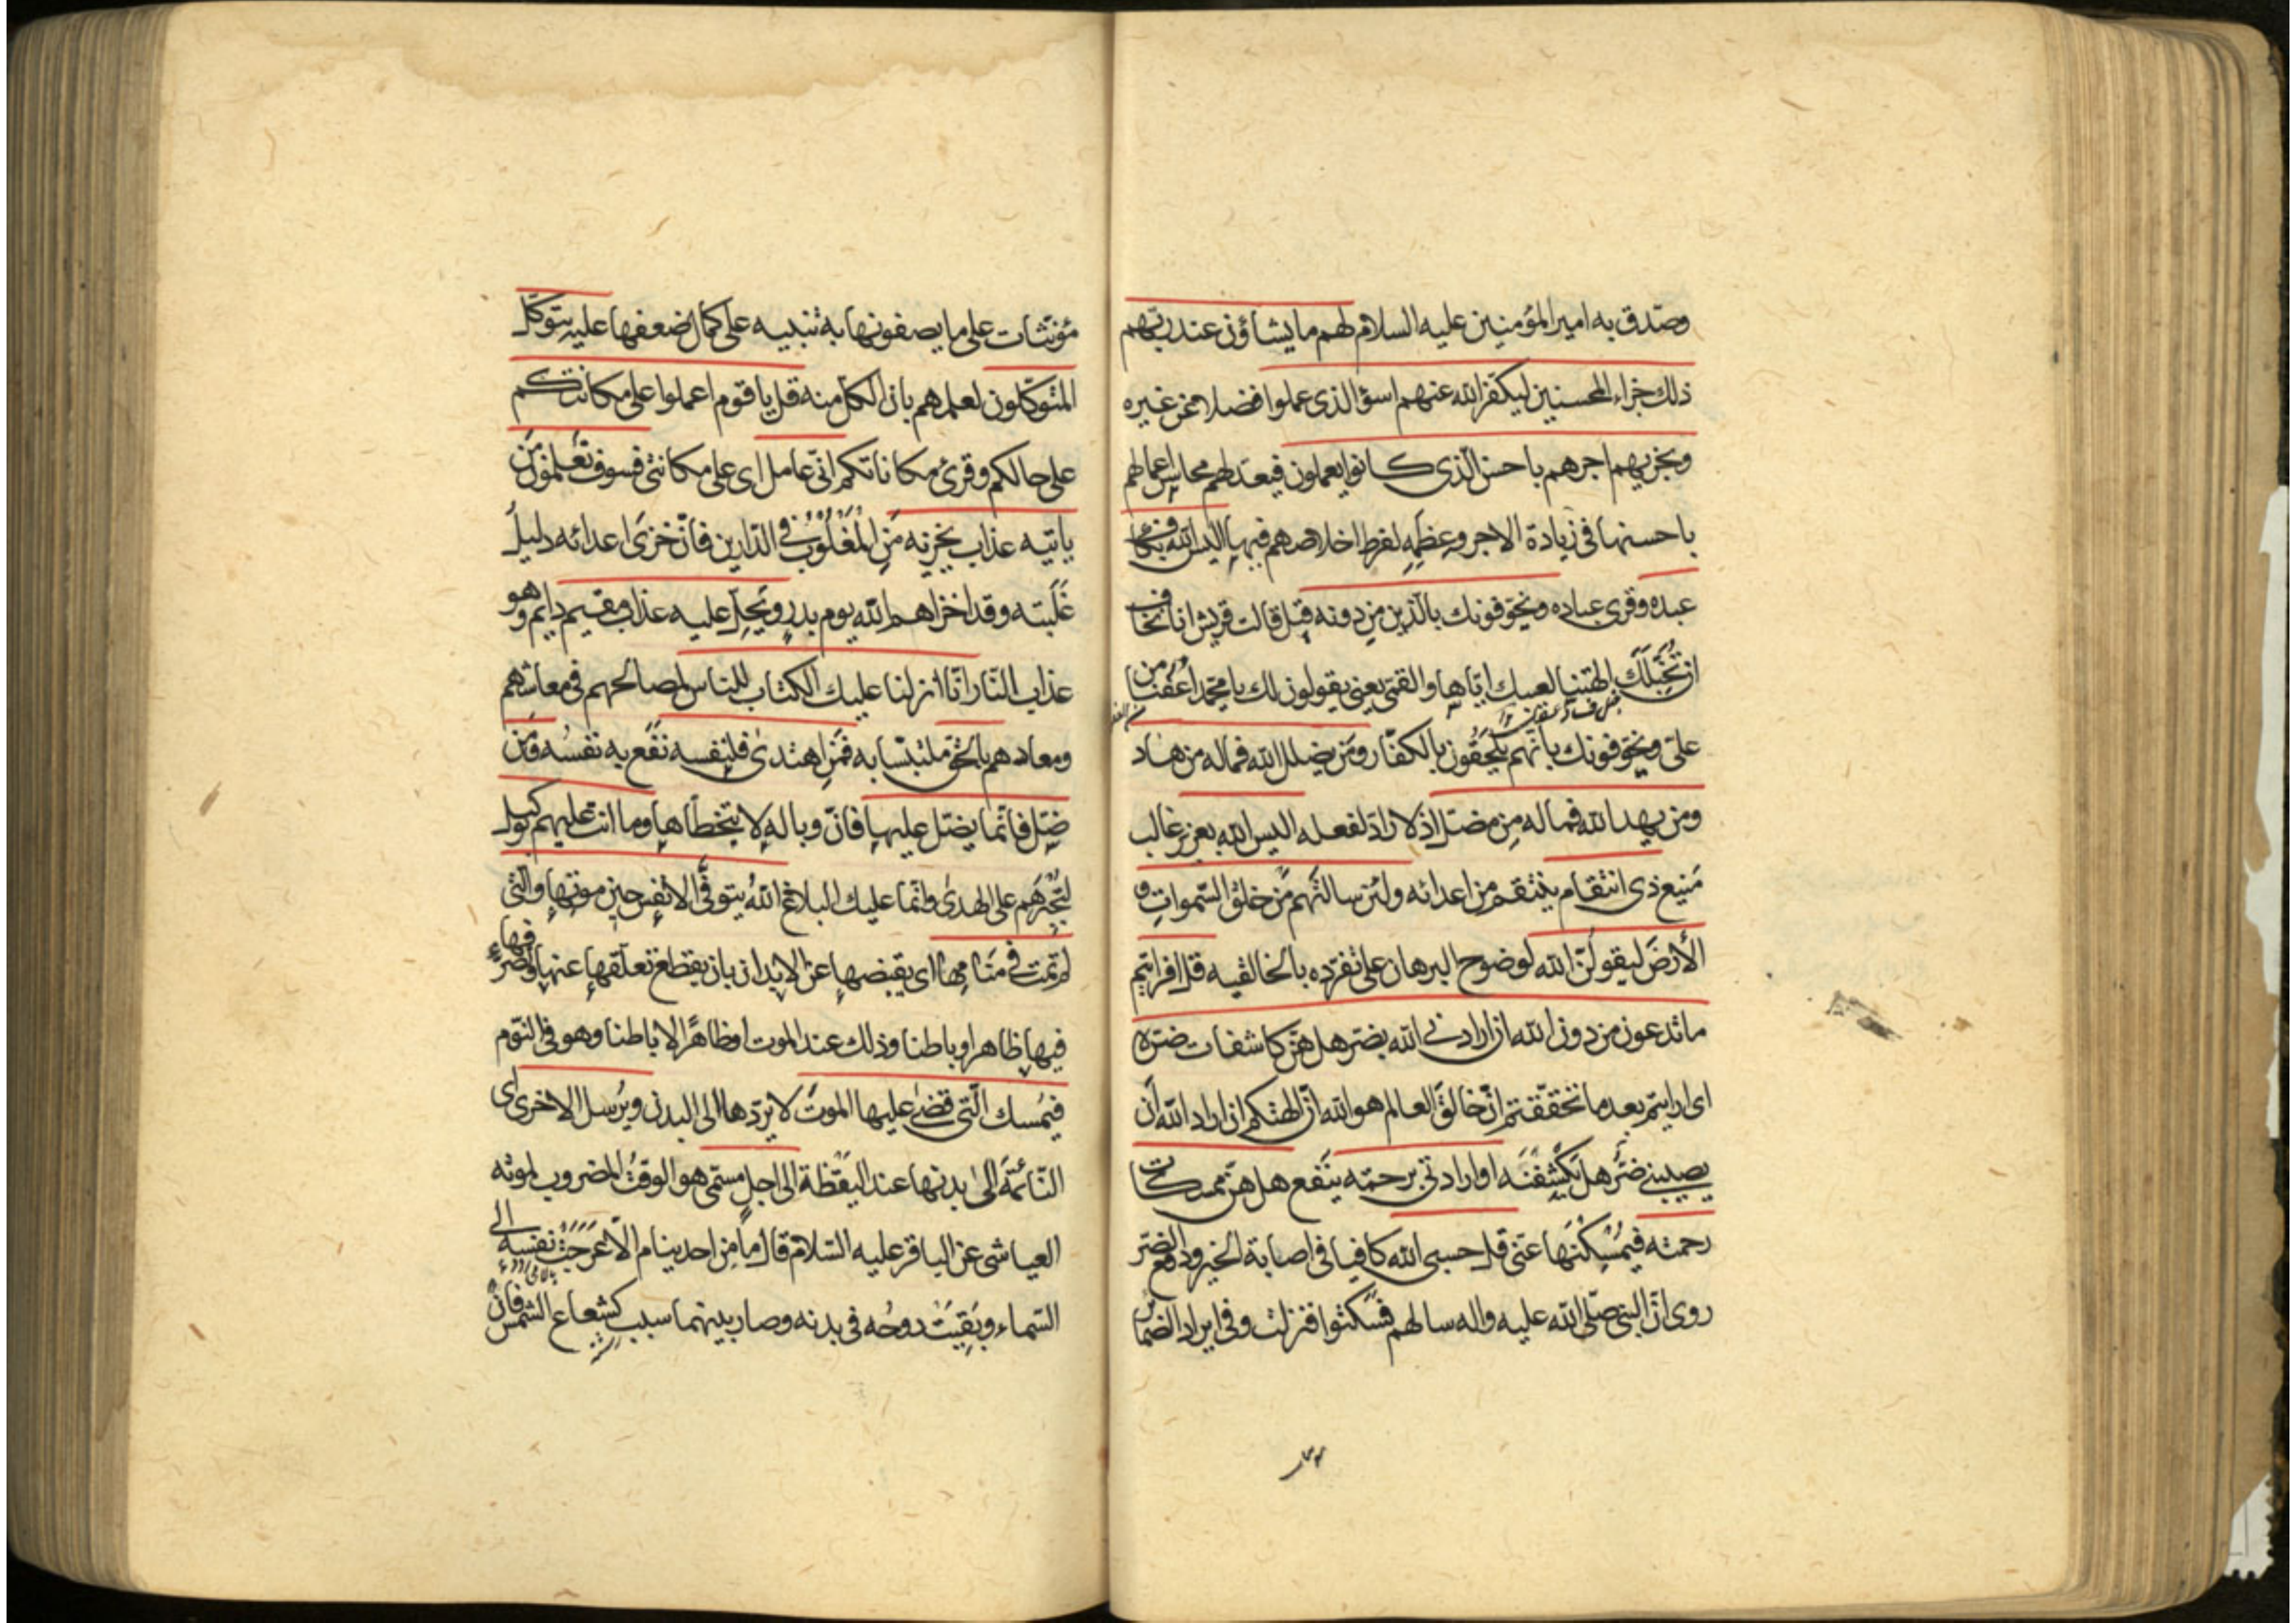 وصدق به امير المؤمنين عليه السلام لهم ما يشاؤن عند ربهم
ذلك جزاء المحسنين ليكفر الله عنهم اسوء الذى عملوا فضلا عن غيره
ويجزيهم اجرهم باحسن الذى كانوا يعملون فيعد لهم محاسن اعمالهم
باحسنها فى زيادة الاجر وعظمه لفرط اخلاصهم فيها اليس الله بكاف
عبده وقرئ عباده ويخوفونك بالذين من دونه قيل قالت قريش انا نخاف
ان تخبلك الهتنا لعيبك اياها والقمى يعنى يقولون لك يا محمد اعفنا من
على ويخوفونك بانهم يلحقون بالكفار ومن يضلل الله فماله من هاد
ومن يهد الله فماله من مضل اذ لا راد لفعله اليس الله بعزيز غالب
منيع ذى انتقام ينتقم من اعدائه ولئن سالتهم من خلق السموات و
الأرض ليقولن الله لوضوح البرهان على تفرده بالخالقيه قل افرايتم
ما تدعون من دون الله ان ارادنى الله بضر هل هن كاشفات ضره
اى ارايتم بعد ما تحققتم ان خالق العالم هو الله ان الهتكم ان اراد الله ان
يصيبنى ضر هل يكشفنه او ارادنى برحمته بنفع هل هن ممسكات
رحمته فيمسكنها عنى قل حسبى الله كافيا فى اصابة الخير ودفع الضر
روى ان النبى صلى الله عليه واله سالهم فسكتوا فنزلت وفى ايراد الضمائر
مؤنثات على ما يصفونها به تنبيه على كمال ضعفها عليه يتوكل
المتوكلون لعلمهم بان الكل منه قل يا قوم اعملوا على مكانتكم
على حالكم وقرئ مكاناتكم انى عامل اى على مكانتى فسوف تعلمون من
ياتيه عذاب يخزيه من المغلوب فى الدارين فان خزى اعدائه دليل
غلبته وقد اخزاهم الله يوم بدر ويحل عليه عذاب مقيم دايم وهو
عذاب النار انا انزلنا عليك الكتاب للناس لمصالحهم فى معاشهم
ومعادهم بالحق ملتبسا به فمن اهتدى فلنفسه نفع به نفسه ومن
ضل فانما يضل عليها فان وباله لا يتخطاها وما انت عليهم بوكيل
لتجبرهم على الهدى وانما عليك البلاغ الله يتوفى الانفس حين موتها والتى
لم تمت فى منامها اى يقبضها عن الابدان بان يقطع تعلقها عنها وتصرفها
فيها ظاهرا وباطنا وذلك عند الموت او ظاهرا لا باطنا وهو فى النوم
فيمسك التى قضى عليها الموت لا يردها الى البدن ويرسل الاخرى اى
النائمة الى بدنها عند اليقظة الى اجل مسمى هو الوقت المضروب لموته
العياشى عن الباقر عليه السلام قال ما من احد ينام الا عرجت نفسه الى
السماء وبقيت روحه فى بدنه وصار بينهما سبب كشعاع الشمس فان